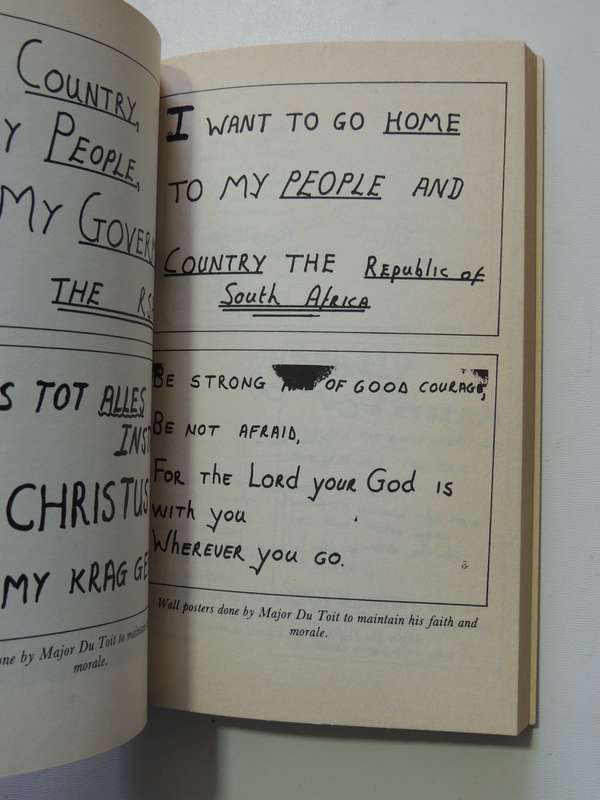 COUNTRY,
Y PEOPLE,
MY GOVER
THE RS
S TOT ALLES
INST
CHRISTUS
MY KRAG GE
one by Major Du Toit to maintain
morale.
I WANT TO GO HOME
TO MY PEOPLE AND
COUNTRY THE Republic of
South Africa
BE STRONG OF GOOD COURAGE,
BE NOT AFRAID,
FOR THE LORD YOUR GOD IS
WITH YOU
WHEREVER YOU GO.
Wall posters done by Major Du Toit to maintain his faith and
morale.